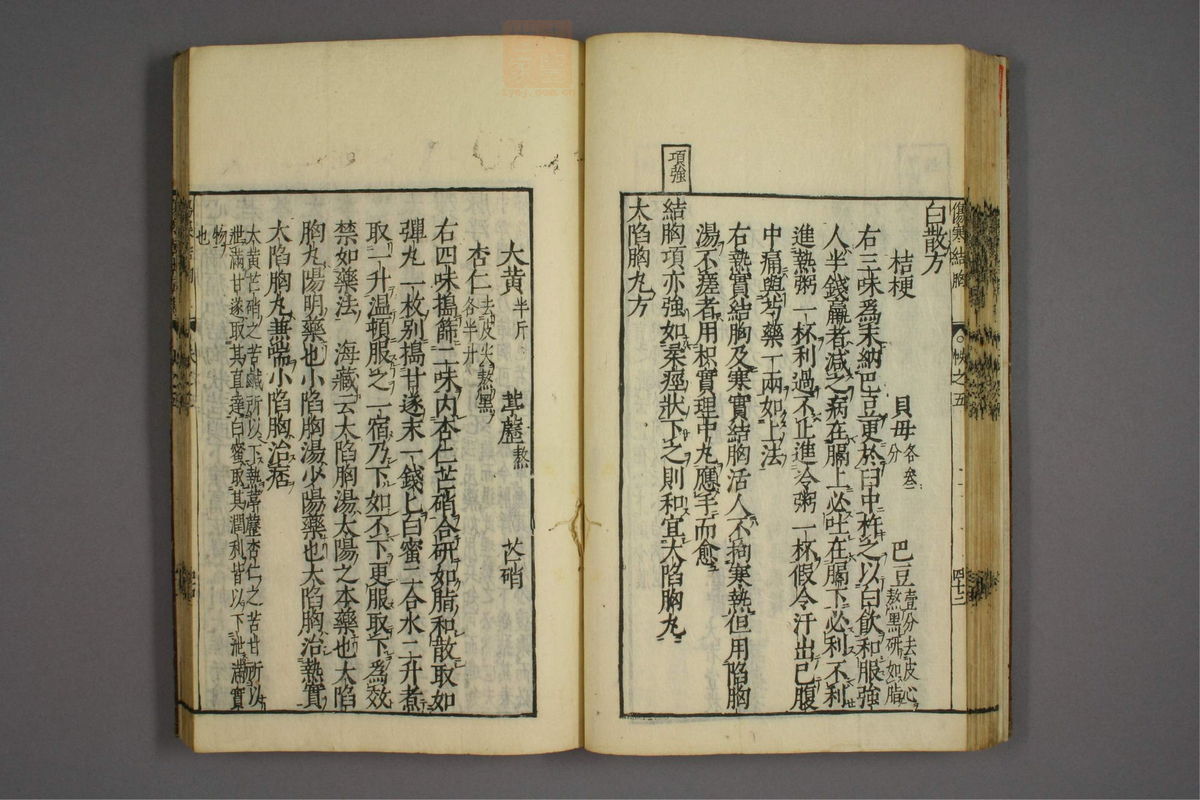 傷寒結胸
帙之五
四十二
白散方
桔梗 貝母各參分 巴豆壹分去皮心
熬黑研如脂
右三味爲末納巴豆更於臼中杵之以白飮和服強
人半錢羸者減之病在膈上必吐在膈下必利不利
進熱粥一杯利過不止進冷粥一杯假令汗出已腹
中痛與芍藥一兩如上法
右熱實結胸及寒實結胸活人不拘寒熱但用陷胸
湯不瘥者用枳實理中丸應手而愈
項強
結胸項亦強如柔痙狀下之則和宜大陷胸丸
大陷胸丸方
大黃半斤 葶藶熬 芒硝
杏仁去皮尖熬黑
各半升
右四味搗篩二味内杏仁芒硝合研如脂和散取如
彈丸一枚別搗甘遂末一錢匕白蜜二合水二升煮
取一升温頓服之一宿乃下如不下更服取下爲效
禁如藥法 海藏云大陷胸湯太陽之本藥也大陷
胸丸陽明藥也小陷胸湯少陽藥也大陷胸治熱實
大陷胸丸兼喘小陷胸治痞
大黃芒硝之苦鹹所以下熱葶藶杏仁之苦甘所以
泄滿甘遂取其直達白蜜取其潤利皆以下泄滿實
物也